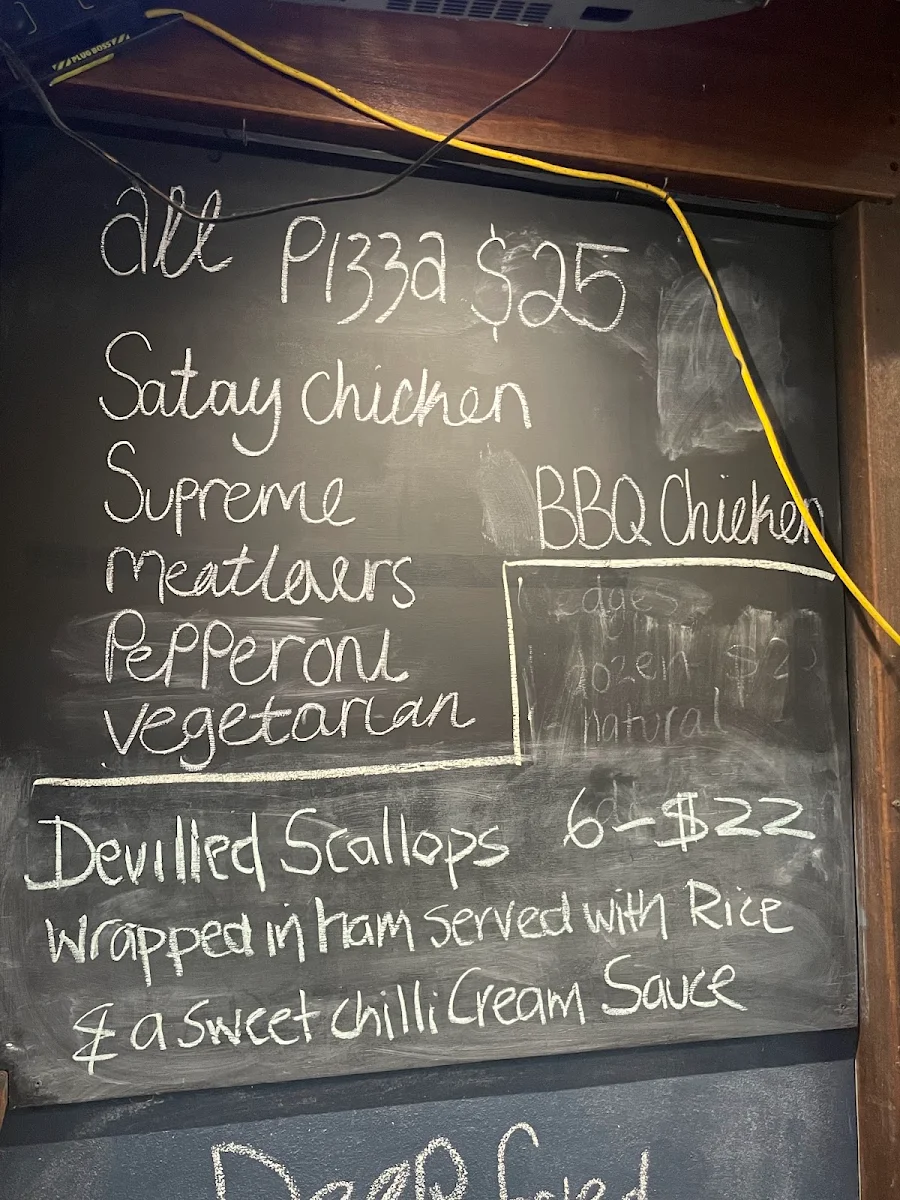 PLUG BOSS
all Pizza $25
Satay chicken
Supreme
BBQ Chicken
meatlovers
Pepperoni
vegetarian
edges
natural
Devilled Scallops 6-$22
Wrapped in ham served with Rice
& a sweet chilli Cream Sauce
Deep fried